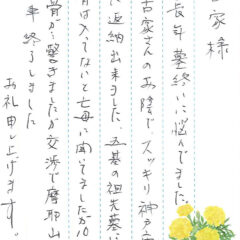 古家様
長年墓終いに悩んでました。
古家さんのお陰でスッキリ神戸
に返納出来ました。五基の祖先墓に
は入ってないと亡母に聞いてましたが10
骨が驚きましたが交渉で摩耶山
終了しました
お礼申し上げます。